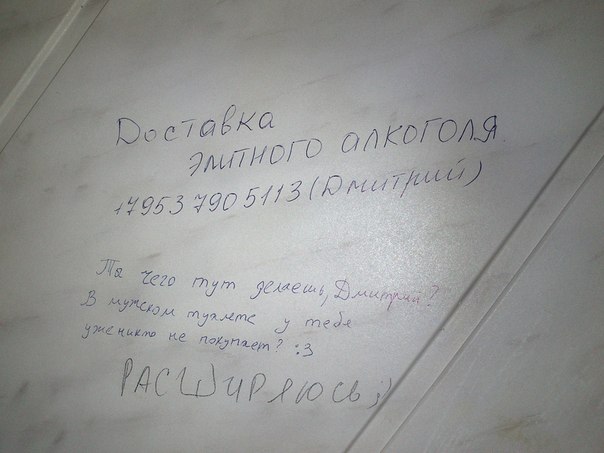 Доставка
элитного алкоголя
+79537905113 (Дмитрий)
Ты чего тут делаешь, Дмитрий?
В мужском туалете у тебя
уже никто не покупает? :3
РАСШИРЯЮСЬ ;)